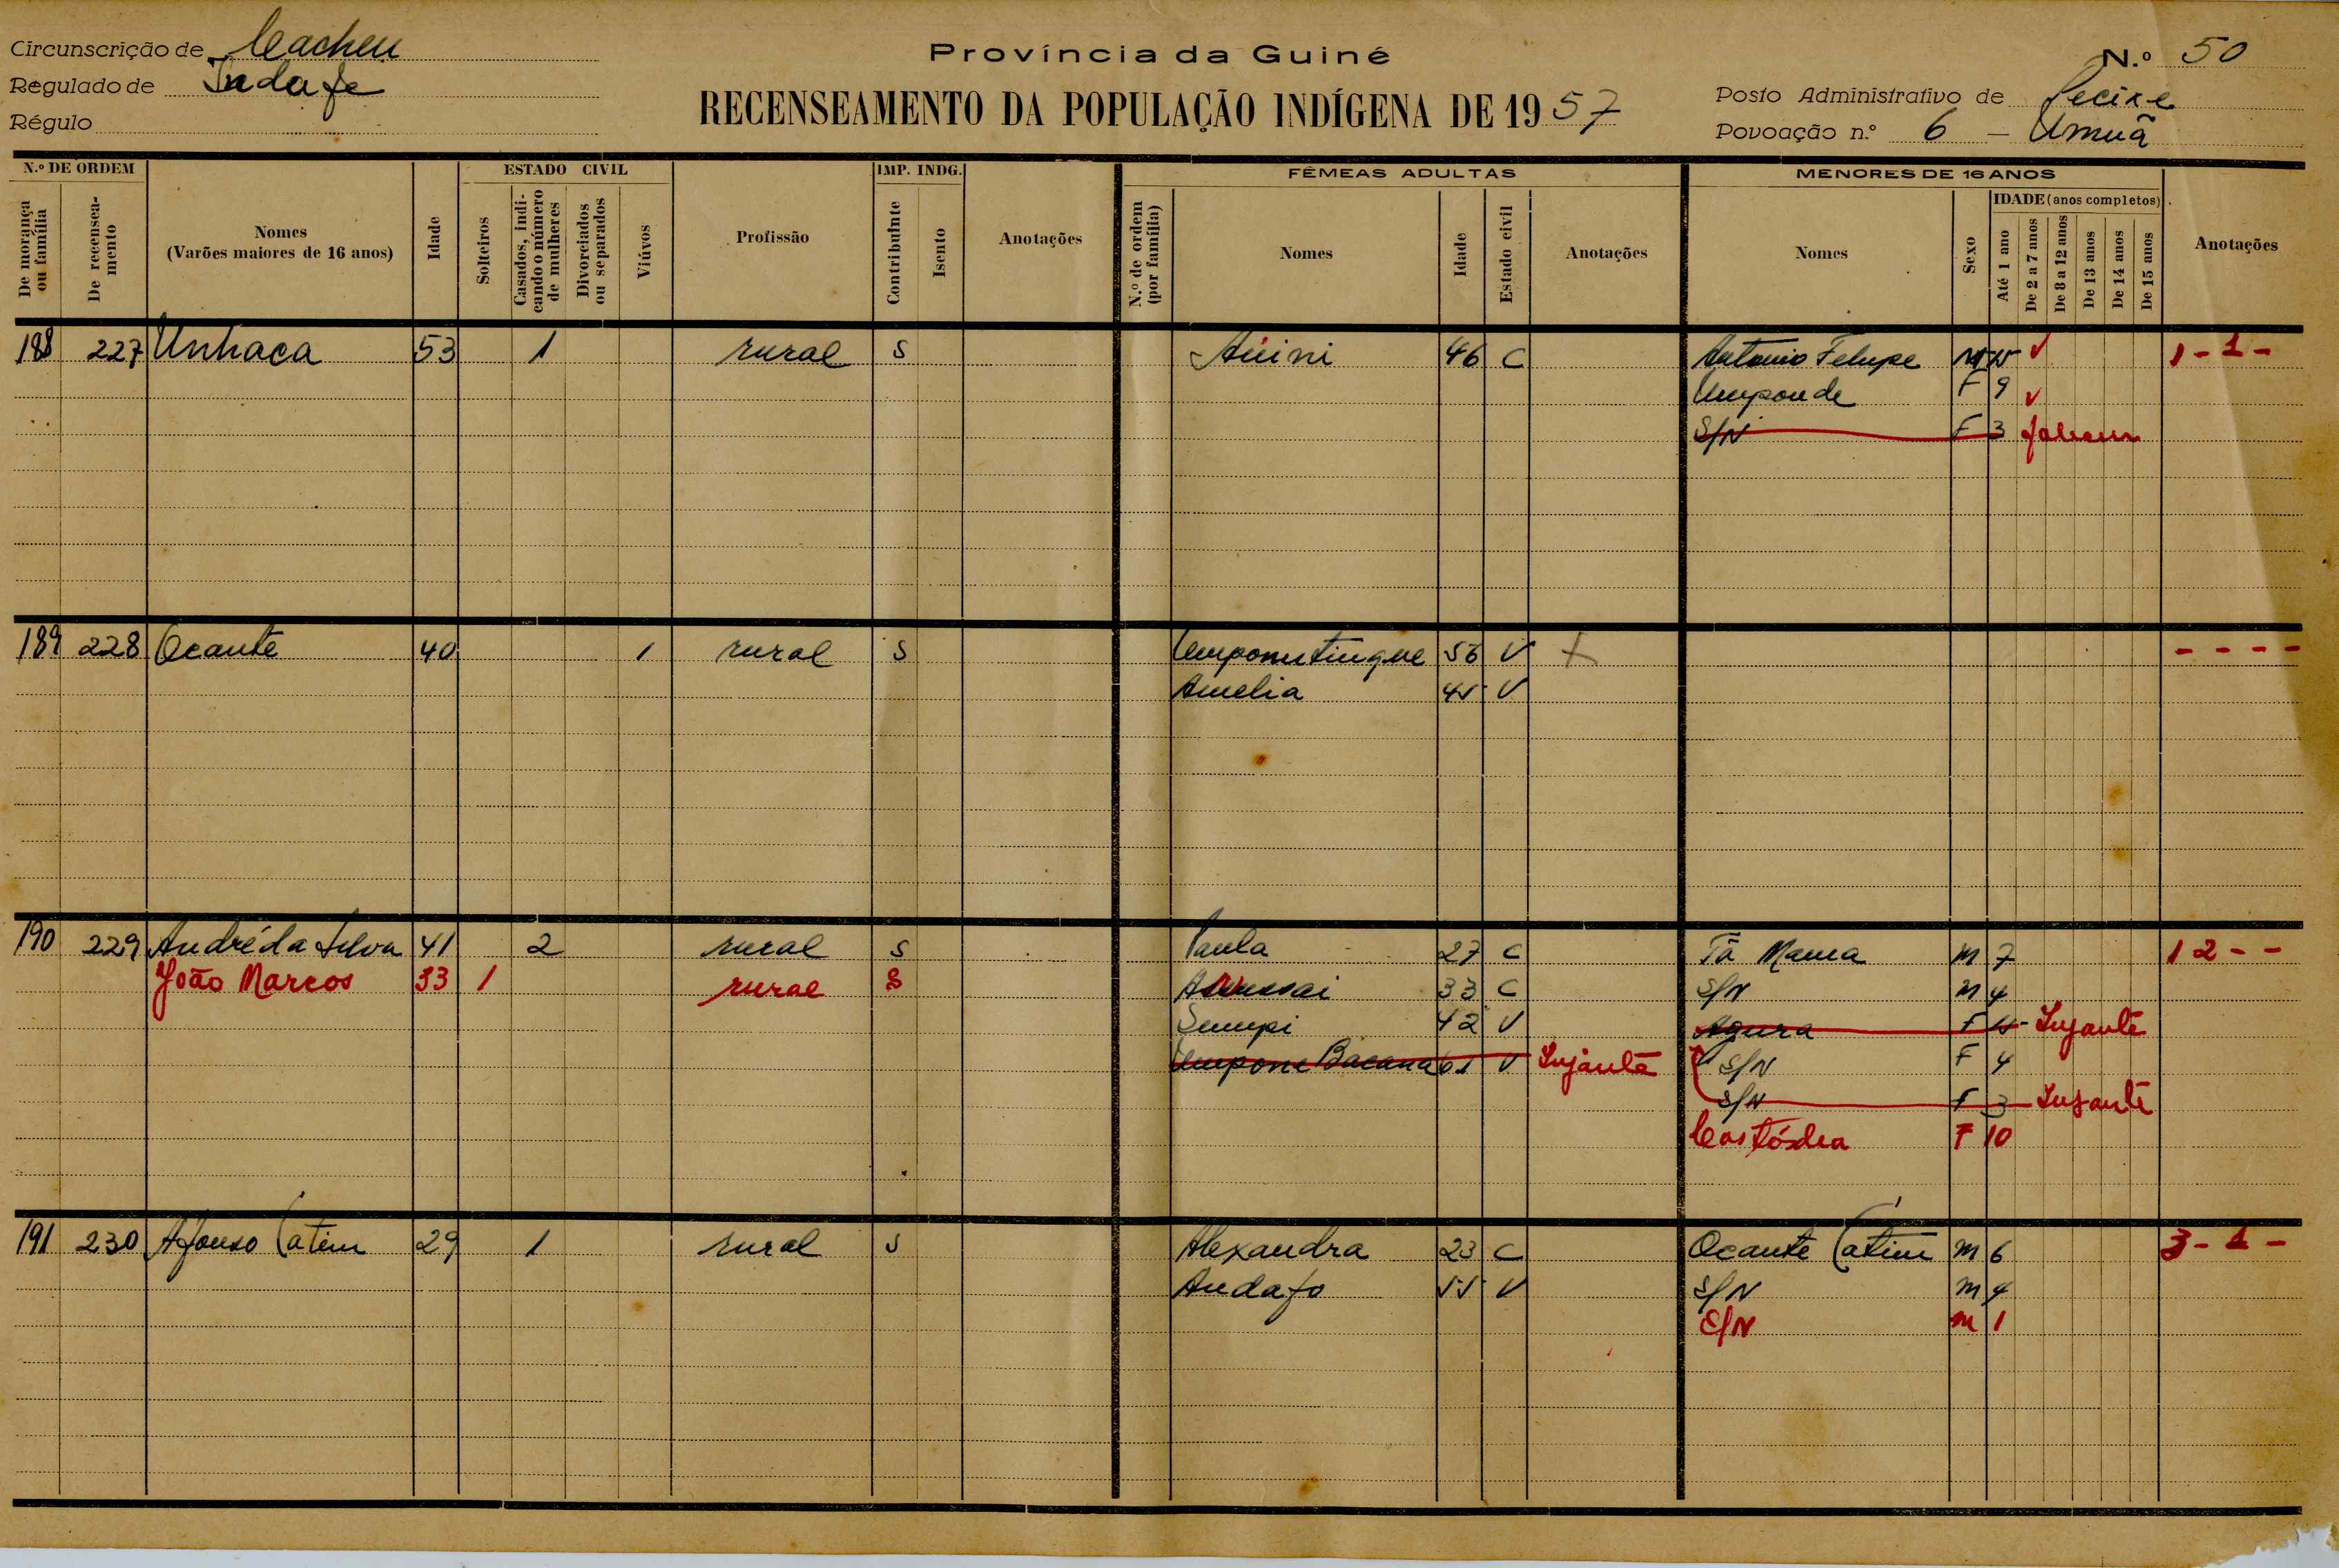 Circunscrição de Cacheu
Província da Guiné
N.º 50
Regulado de Indafe
RECENSEAMENTO DA POPULAÇÃO INDÍGENA DE 1957
Posto Administrativo de Pecixe
Régulo
Povoação n.º 6 – Umuã
N.º DE ORDEM
ESTADO CIVIL
IMP. INDG.
FÊMEAS ADULTAS
MENORES DE 16 ANOS
De morança ou família
De recenseamento
Nomes
(Varões maiores de 16 anos)
Idade
Solteiros
Casados, indicando o número de mulheres
Divorciados ou separados
Viúvos
Profissão
Contribuinte
Isento
Anotações
N.º de ordem (por família)
Nomes
Idade
Estado civil
Anotações
Nomes
Sexo
IDADE (anos completos)
Até 1 ano
De 2 a 7 anos
De 8 a 12 anos
De 13 anos
De 14 anos
De 15 anos
Anotações
188 227 Unhaca 53 1 rural S Auini 46 C Antonio Felupe M 15 1 - 1 -
Umponde F 9
S/N F 3
189 228 Ocante 40 1 rural S 56 V - - - -
Amelia 45 V
190 229 André da Silva 41 2 rural S Paula 27 C Tã Mama M 7 1 2 - -
João Marcos 33 1 rural S 33 C S/N M 4
Sumpi 42 V Agura F 15
Umpone Bacana 61 V S/N F 4
S/N F 3
Custódia F 10
191 230 Afonso Catim 29 1 rural S Alexandra 23 C Ocante Catim M 6 3 - 1 -
Andafo 55 V S/N M 4
S/N M 1